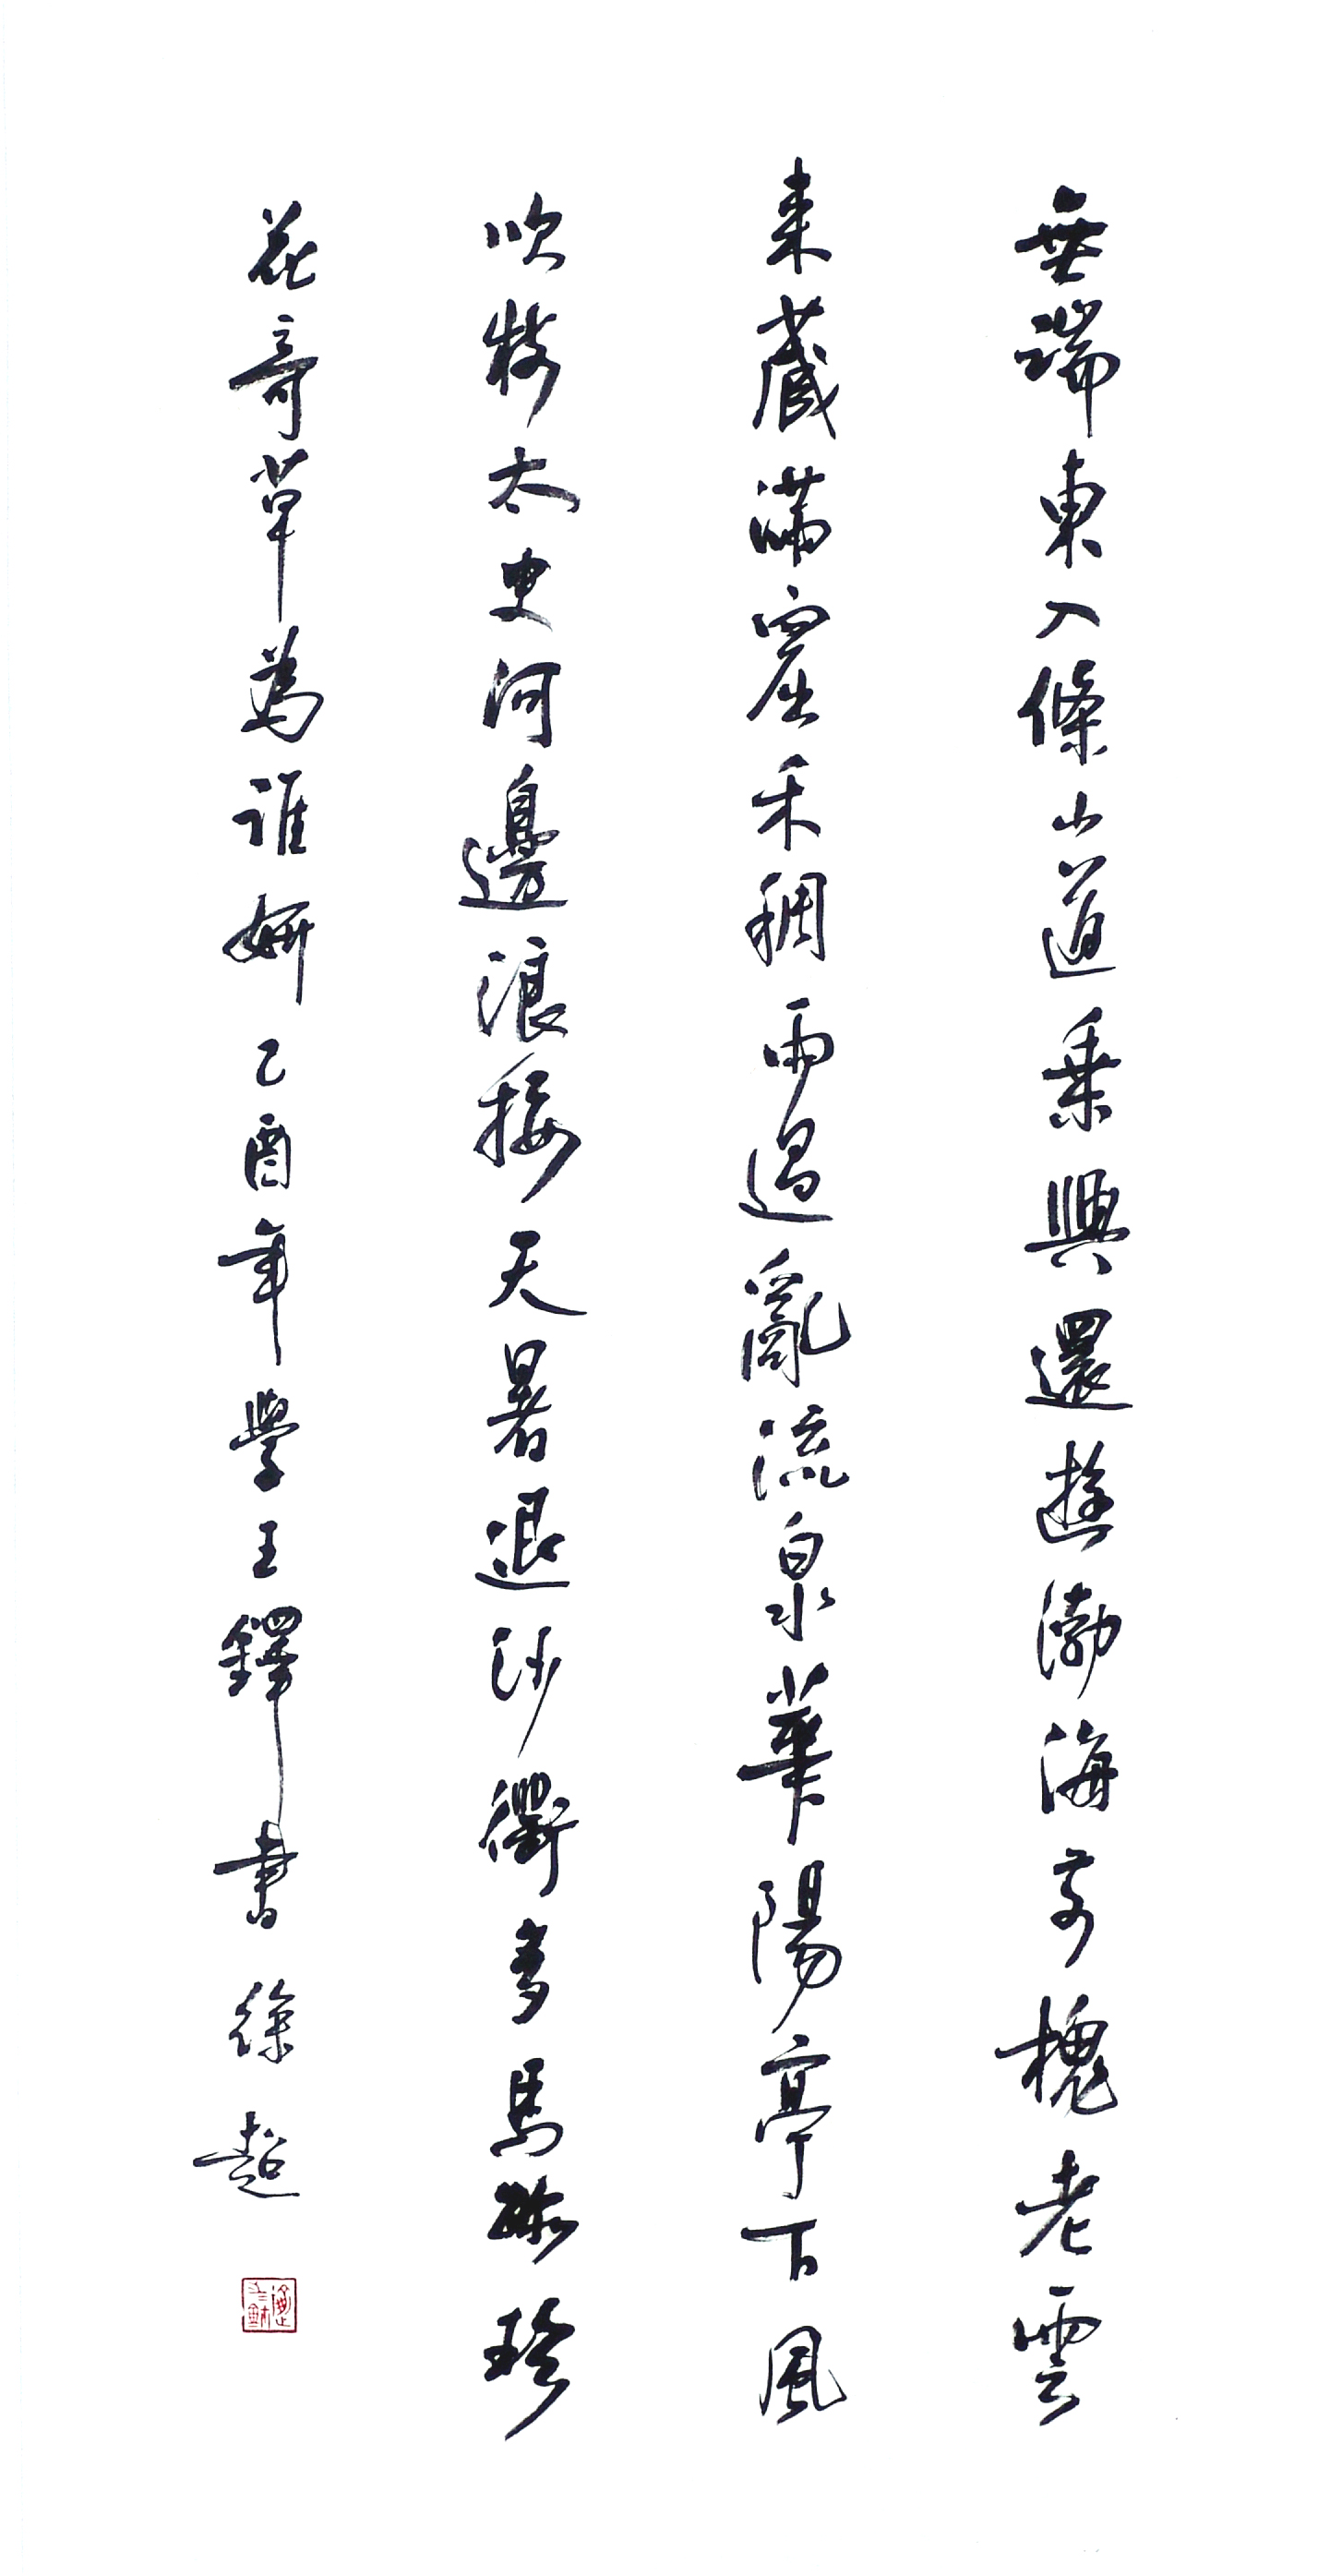 無端東入條山道乗興還遊渤海前槐老雲
来藏滿窟禾稠雨過亂流泉華陽亭下風
吹樹太史河邊浪接天暑退沙衢多馬跡珍
花奇草為誰妍乙酉年學王鐸書徐超